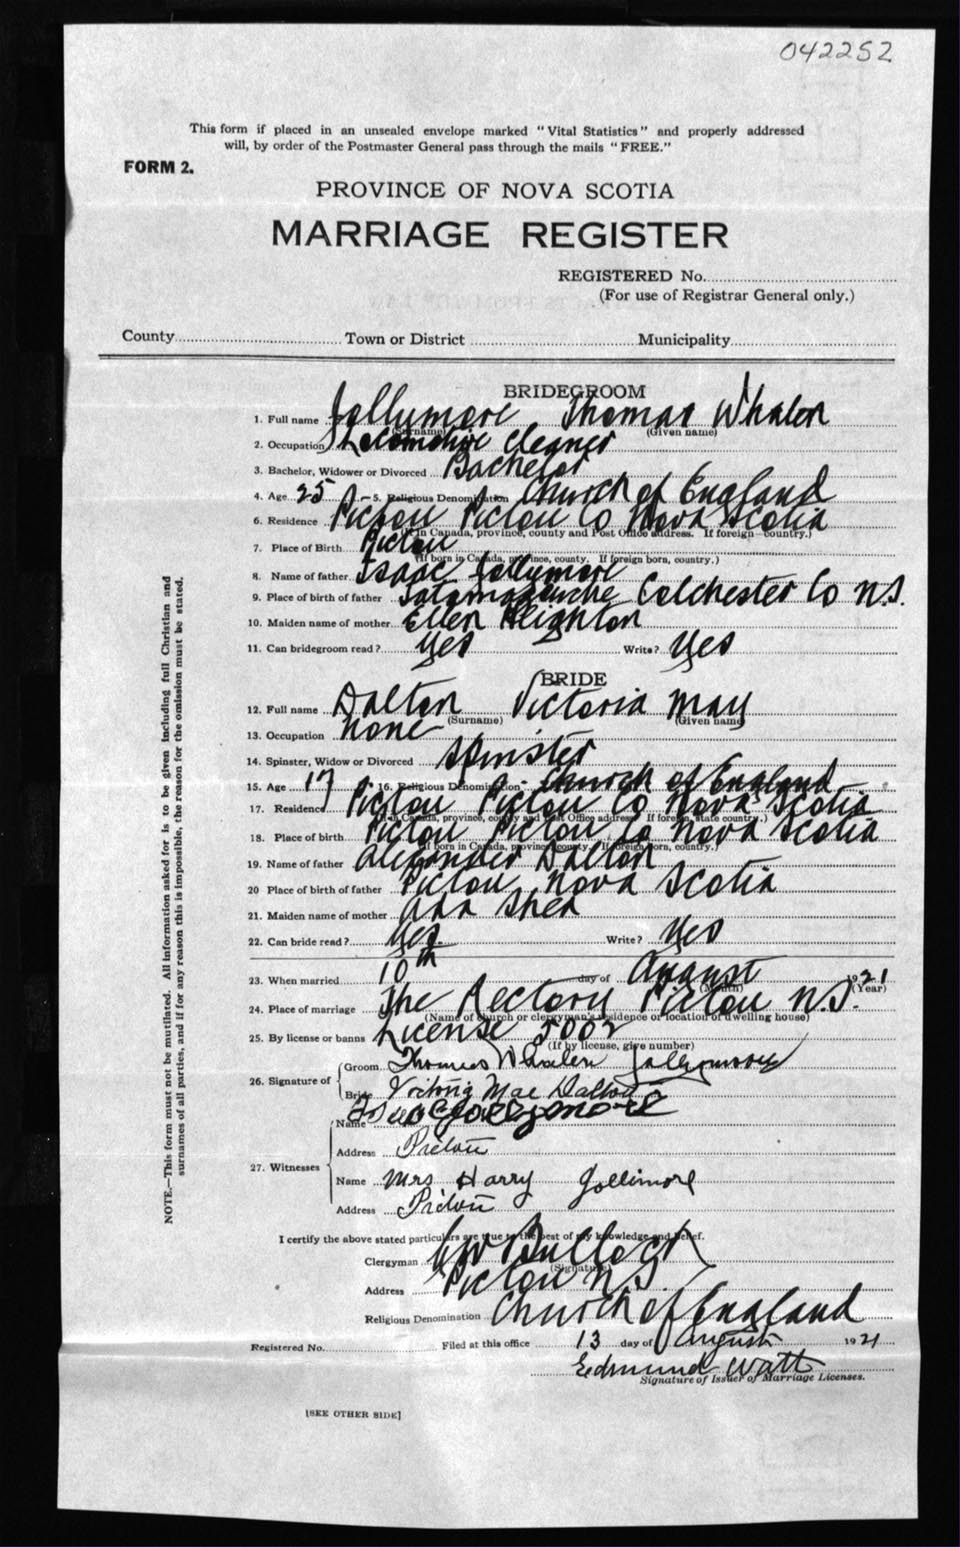 042252
This form if placed in an unsealed envelope marked "Vital Statistics" and properly addressed
will, by order of the Postmaster General pass through the mails "FREE."
FORM 2.
PROVINCE OF NOVA SCOTIA
MARRIAGE REGISTER
REGISTERED No.
(For use of Registrar General only.)
County Town or District Municipality
BRIDEGROOM
1. Full name Jollymore Thomas Whalen
(Surname) (Given name)
2. Occupation Locomotive Cleaner
3. Bachelor, Widower or Divorced Bachelor
4. Age 25 5. Religious Denomination Church of England
6. Residence Pictou Pictou Co Nova Scotia
(If in Canada, province, county and Post Office address. If foreign—country.)
7. Place of Birth Pictou
(If born in Canada, province, county. If foreign born, country.)
8. Name of father Isaac Jollymore
9. Place of birth of father Tatamagouche Colchester Co N.S.
10. Maiden name of mother Ellen Heighton
11. Can bridegroom read? Yes Write? Yes
BRIDE
12. Full name Dalton Victoria May
(Surname) (Given name)
13. Occupation None
14. Spinster, Widow or Divorced Spinster
15. Age 17 16. Religious Denomination Church of England
17. Residence Pictou Pictou Co Nova Scotia
(If in Canada, province, county and Post Office address. If foreign, state country.)
18. Place of birth Pictou Pictou Co Nova Scotia
(If born in Canada, province, county. If foreign born, country.)
19. Name of father Alexander Dalton
20 Place of birth of father Pictou Nova Scotia
21. Maiden name of mother Ada Shea
22. Can bride read? Yes. Write? Yes
23. When married 10th day of August 1921
(Month) (Year)
24. Place of marriage The Rectory Pictou N.S.
(Name of church or clergyman's residence or location of dwelling house)
25. By license or banns License 5002
(If by license, give number)
26. Signature of Groom Thomas Whalen Jollymore
Bride Victoria Mae Dalton
27. Witnesses Name Isaac Jollymore
Address Pictou
Name Mrs Harry Jollimore
Address Pictou
I certify the above stated particulars are true to the best of my knowledge and belief.
Clergyman Bullock
(Signature)
Address Pictou N.S.
Religious Denomination Church of England
Registered No. Filed at this office 13 day of August 1921
Edmund Watt
Signature of Issuer of Marriage Licenses.
[SEE OTHER SIDE]
NOTE.—This form must not be mutilated. All information asked for is to be given including full Christian and
surnames of all parties, and if for any reason this is impossible, the reason for the omission must be stated.